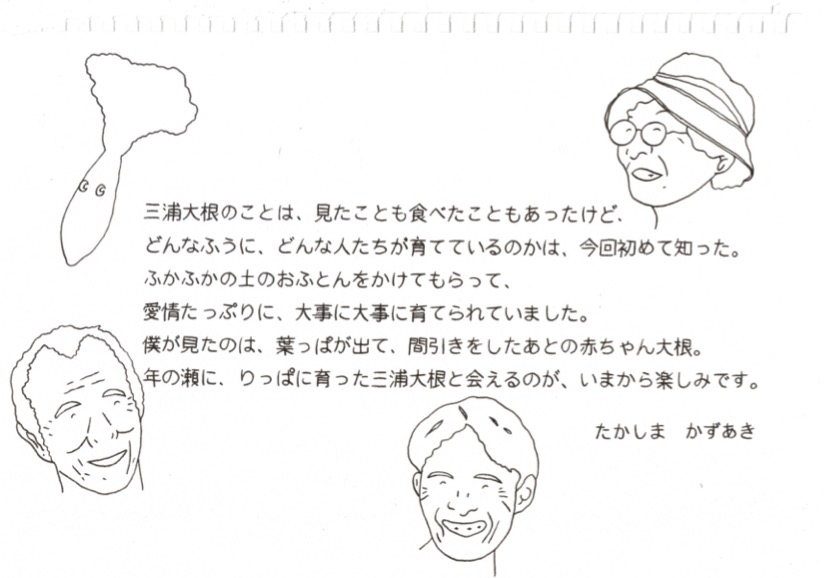 三浦大根のことは、見たことも食べたこともあったけど、
どんなふうに、どんな人たちが育てているのかは、今回初めて知った。
ふかふかの土のおふとんをかけてもらって、
愛情たっぷりに、大事に大事に育てられていました。
僕が見たのは、葉っぱが出て、間引きをしたあとの赤ちゃん大根。
年の瀬に、りっぱに育った三浦大根と会えるのが、いまから楽しみです。
たかしま　かずあき